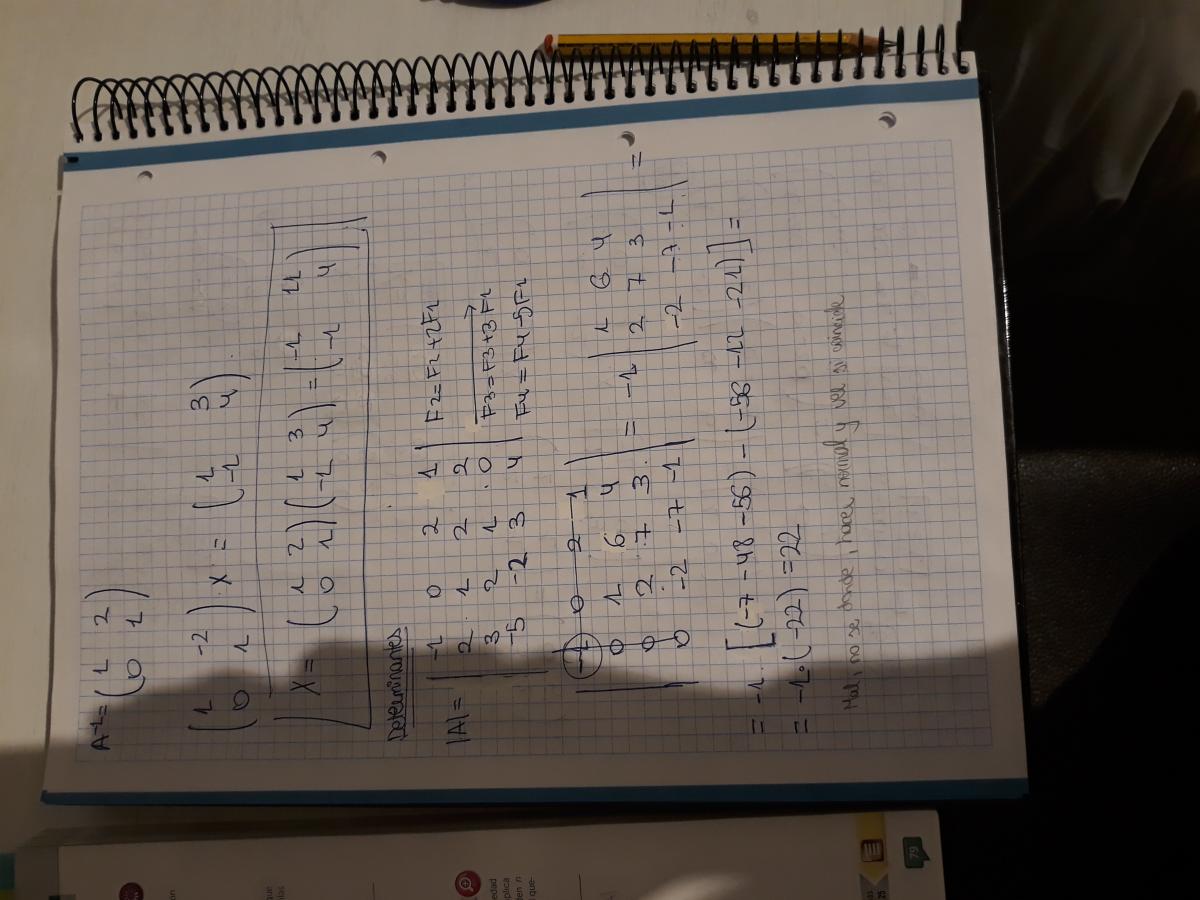 A⁻¹ = ( 1 2 / 0 1 )
( 1 -2 / 0 1 ) · X = ( 1 3 / -1 4 ).
X = ( 1 2 / 0 1 ) ( 1 3 / -1 4 ) = ( -1 11 / -1 4 )
Determinantes
|A| = | -1 0 2 1 | F2=F2+2F1
2 1 2 2
3 2 1 0 F3=F3+3F1
-5 -2 3 4 F4=F4-5F1
-1 0 2 1
0 1 6 4
0 2 7 3 = -1 | 1 6 4 / 2 7 3 / -2 -7 -1 | =
0 -2 -7 -1
= -1 · [(-7 -48 -56) - (-56 -12 -21)] =
= -1 · (-22) = 22
Mal, no se donde, hacer normal y ver si coincide
79